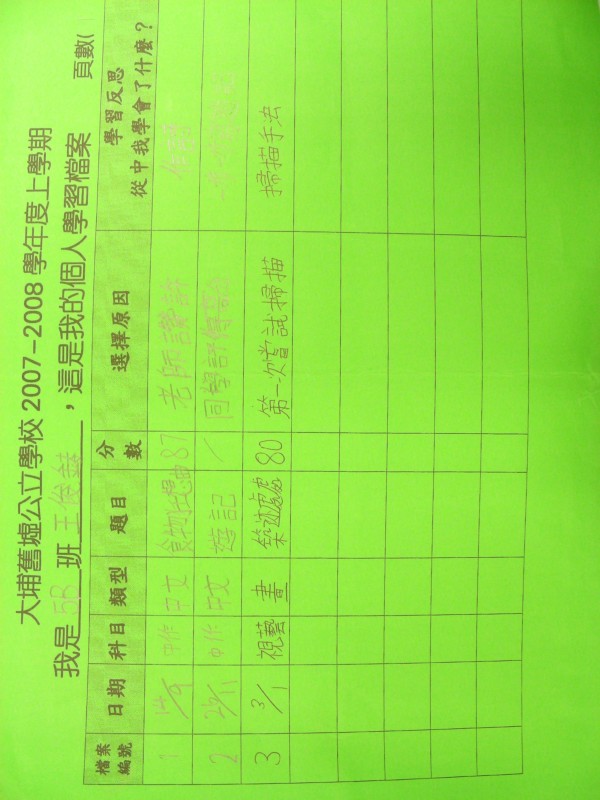 大埔舊墟公立學校 2007-2008 學年度上學期
我是 5B 班 王俊 ，這是我的個人學習檔案 頁數(
檔案編號 日期 科目 類型 題目 分數 選擇原因 學習反思 從中我學會了什麼？
1 14/9 中作 中文 食物 87 老師讚許
2 29/11 中作 中文 遊記 / 同學
3 3/1 視藝 畫 築迹處處 80 第一次嘗試掃描 掃描手法